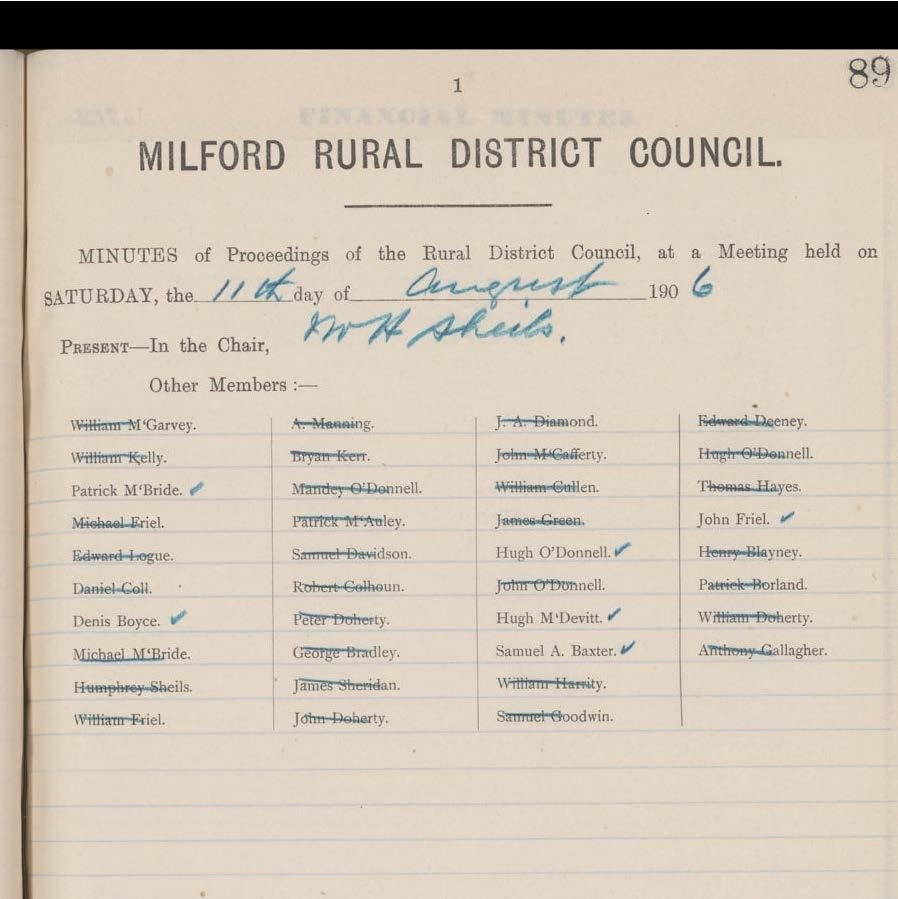 89
1
MILFORD RURAL DISTRICT COUNCIL.
MINUTES of Proceedings of the Rural District Council, at a Meeting held on
SATURDAY, the 11th day of August 1906
PRESENT—In the Chair, Mr H Sheils.
Other Members :—
William M‘Garvey.
William Kelly.
Patrick M‘Bride. ✓
Michael Friel.
Edward Logue.
Daniel Coll.
Denis Boyce. ✓
Michael M‘Bride.
Humphrey Sheils.
William Friel.
A. Manning.
Bryan Kerr.
Mandey O’Donnell.
Patrick M‘Auley.
Samuel Davidson.
Robert Colhoun.
Peter Doherty.
George Bradley.
James Sheridan.
John Doherty.
J. A. Diamond.
John M‘Cafferty.
William Cullen.
James Green.
Hugh O’Donnell. ✓
John O’Donnell.
Hugh M‘Devitt. ✓
Samuel A. Baxter. ✓
William Harrity.
Samuel Goodwin.
Edward Deeney.
Hugh O’Donnell.
Thomas Hayes.
John Friel. ✓
Henry Blayney.
Patrick Borland.
William Doherty.
Anthony Gallagher.